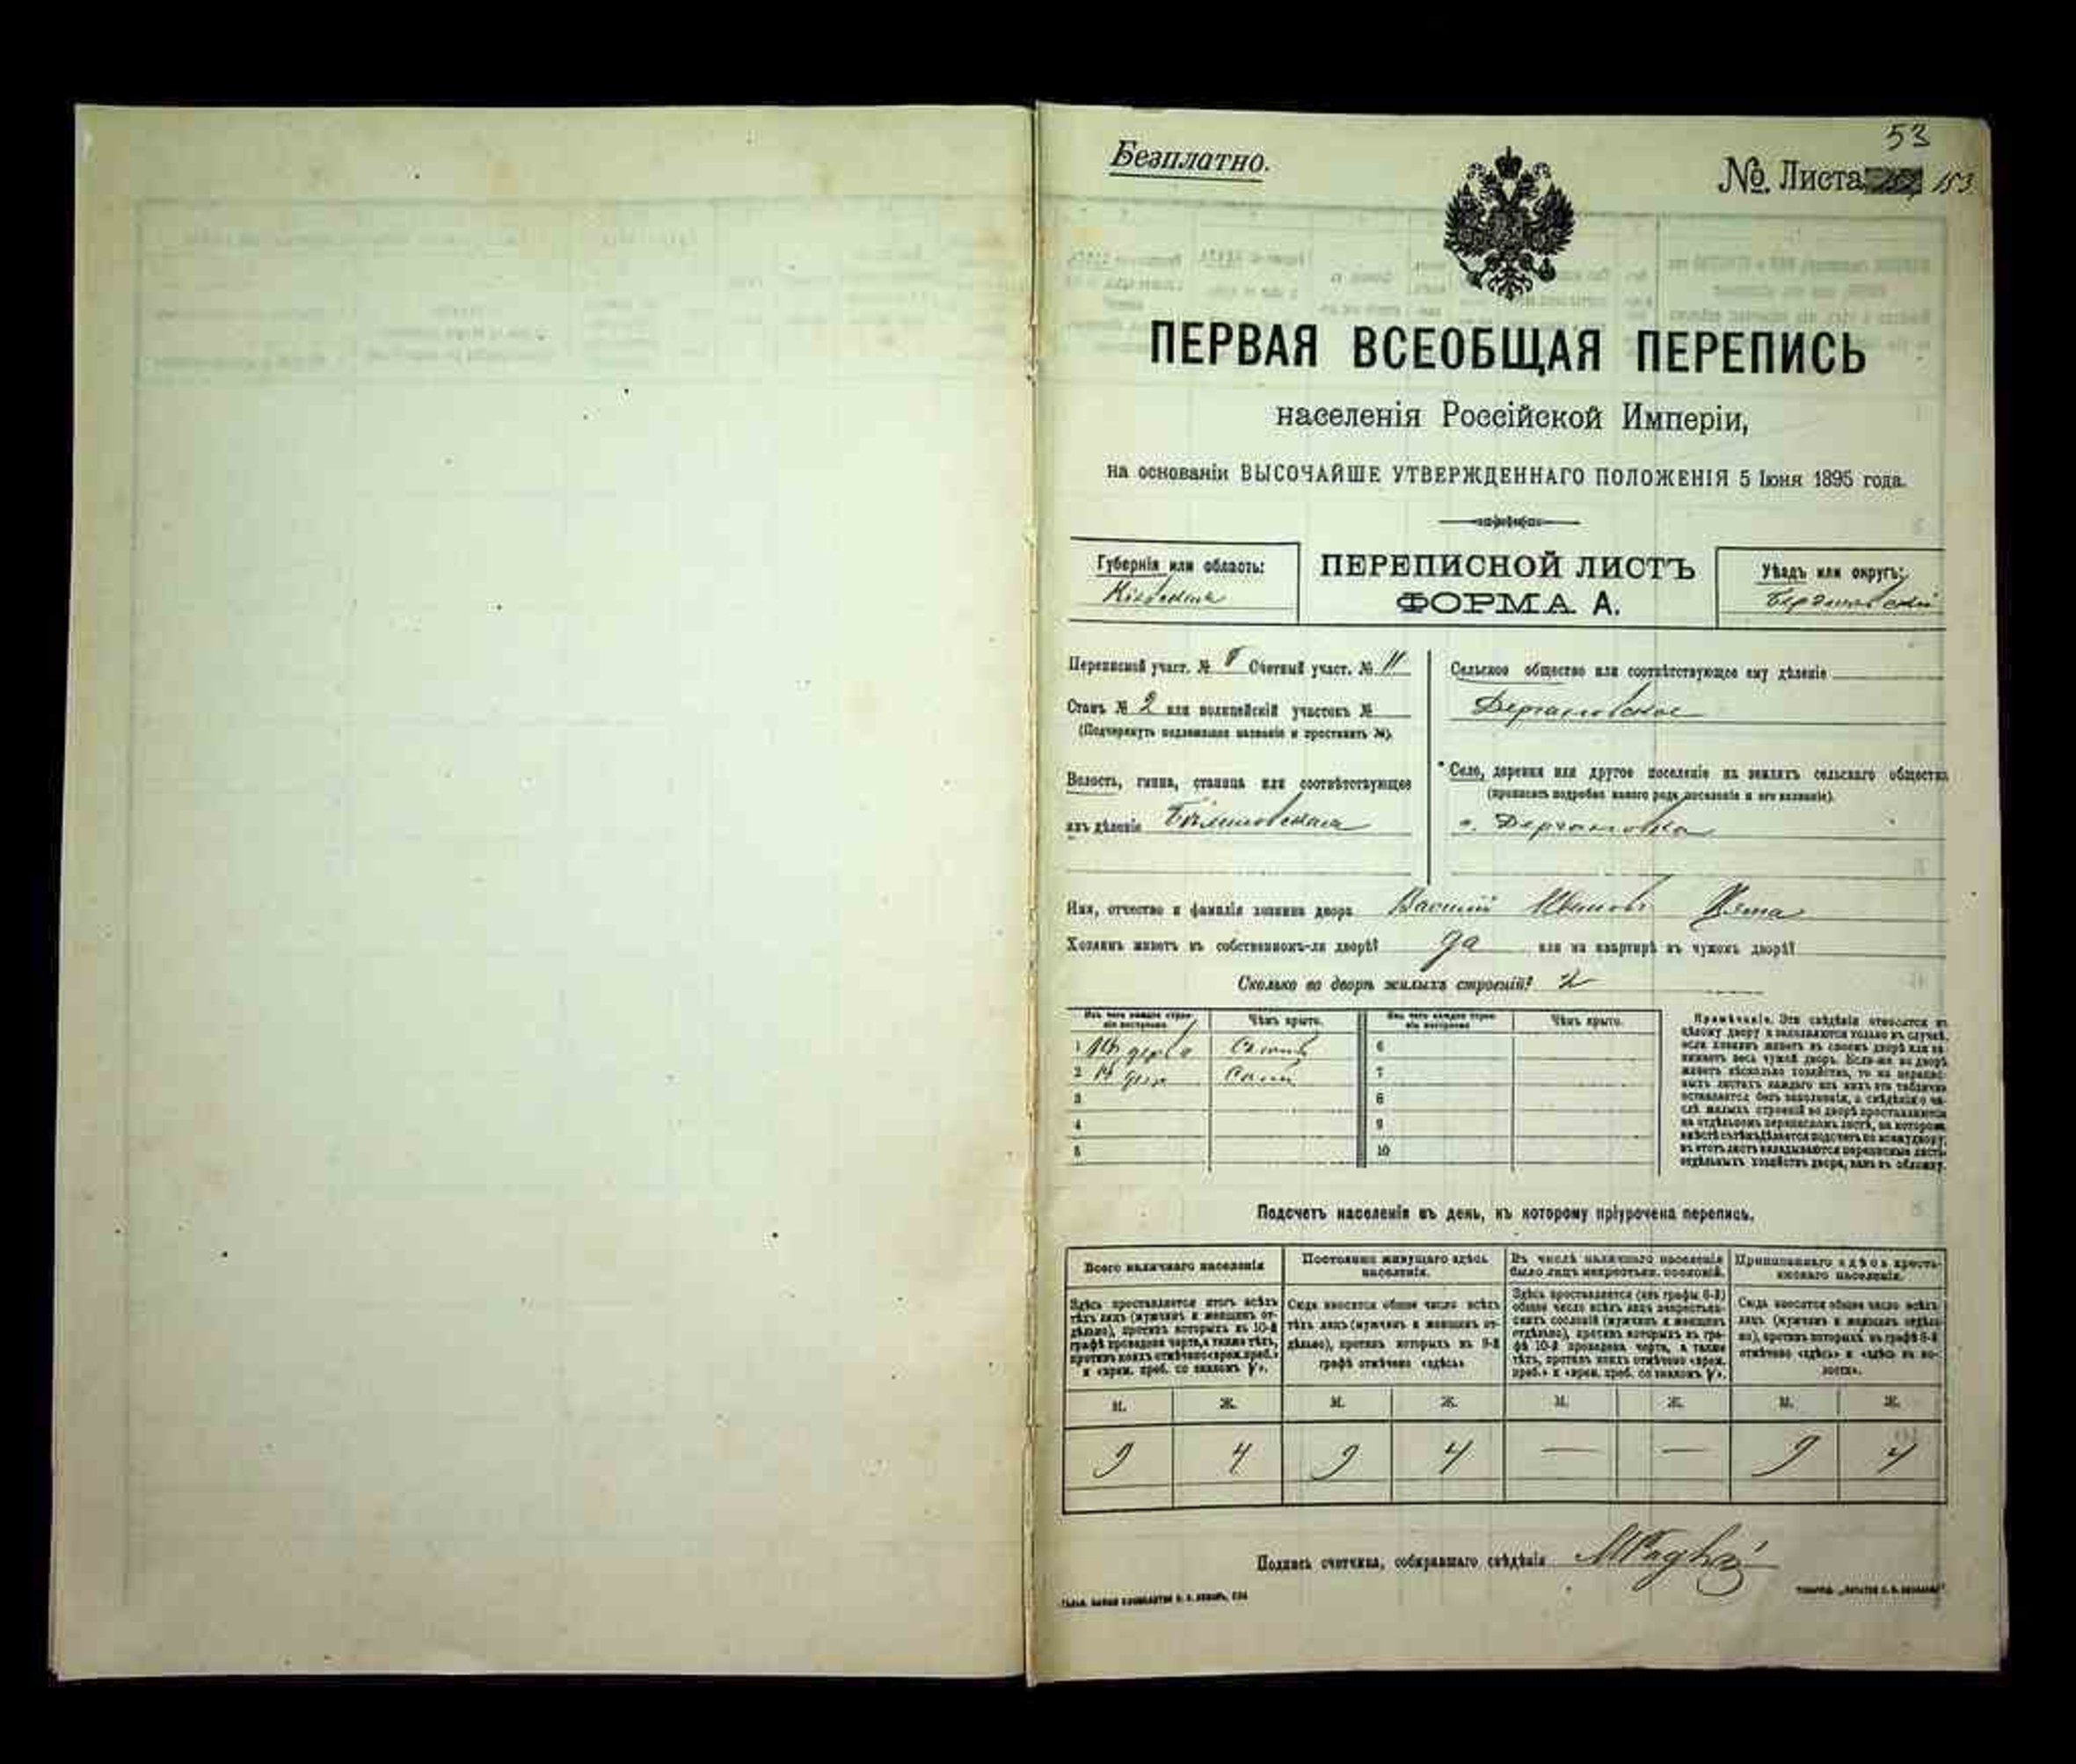 53
Безплатно.
№. Листа 153
ПЕРВАЯ ВСЕОБЩАЯ ПЕРЕПИСЬ
населенія Россійской Имперіи,
на основаніи ВЫСОЧАЙШЕ УТВЕРЖДЕННАГО ПОЛОЖЕНІЯ 5 Іюня 1895 года.
Губернія или область:
Кіевская
ПЕРЕПИСНОЙ ЛИСТЪ
ФОРМА А.
Уѣздъ или округъ:
Бердичевскій
Переписной участ. № Счетный участ. № 11
Станъ № 2 или полицейскій участокъ №
(Подчеркнуть надлежащее названіе и проставить №).
Волость, гмина, станица или соотвѣтствующее
имъ дѣленіе
Сельское общество или соотвѣтствующее ему дѣленіе
Село, деревня или другое поселеніе на земляхъ сельскаго общества
(прописать подробно какого рода поселеніе и его названіе).
с.
Имя, отчество и фамилія хозяина двора Василій Ивановъ
Хозяинъ живетъ въ собственномъ-ли дворѣ? да или на квартирѣ въ чужомъ дворѣ?
Сколько во дворѣ жилыхъ строеній? 2
Изъ чего каждое строеніе построено Чѣмъ крыто. Изъ чего каждое строеніе построено Чѣмъ крыто.
1 6
2 7
3 8
4 9
5 10
Примѣчаніе. Эти свѣдѣнія относятся къ
цѣлому двору и заполняются только въ случаѣ,
если хозяинъ живетъ въ своемъ дворѣ или за-
нимаетъ весь чужой дворъ. Если-же во дворѣ
живетъ нѣсколько хозяйствъ, то на перепис-
ныхъ листахъ каждаго изъ нихъ эта табличка
оставляется безъ заполненія, а свѣдѣнія о чи-
слѣ жилыхъ строеній во дворѣ проставляются
на отдѣльномъ переписномъ листѣ, на которомъ
вмѣстѣ съ тѣмъ дѣлается подсчетъ по всему двору;
въ этотъ листъ вкладываются переписные листы
отдѣльныхъ хозяйствъ двора, какъ въ обложку.
Подсчетъ населенія въ день, къ которому пріурочена перепись.
Всего наличнаго населенія
Здѣсь проставляется итогъ всѣхъ
тѣхъ лицъ (мужчинъ и женщинъ от-
дѣльно), противъ которыхъ въ 10-й
графѣ проведена черта, а также тѣхъ,
противъ коихъ отмѣчено «врем. преб.»
и «врем. преб. со знакомъ V».
Постоянно живущаго здѣсь
населенія.
Сюда вносится общее число всѣхъ
тѣхъ лицъ (мужчинъ и женщинъ от-
дѣльно), противъ которыхъ въ 9-й
графѣ отмѣчено «здѣсь»
Въ числѣ наличнаго населенія
было лицъ некрестьян. сословій.
Здѣсь проставляется (изъ графы 6-й)
общее число всѣхъ лицъ некрестьян-
скихъ сословій (мужчинъ и женщинъ
отдѣльно), противъ которыхъ въ гра-
фѣ 10-й проведена черта, а также
тѣхъ, противъ коихъ отмѣчено «врем.
преб.» и «врем. преб. со знакомъ V».
Приписаннаго здѣсь кресть-
янскаго населенія.
Сюда вносится общее число всѣхъ
лицъ (мужчинъ и женщинъ отдѣль-
но), противъ которыхъ въ графѣ 8-й
отмѣчено «здѣсь» и «здѣсь въ во-
лости».
М. Ж. М. Ж. М. Ж. М. Ж.
9 4 9 4 — — 9 4
Подпись счетчика, собиравшаго свѣдѣнія